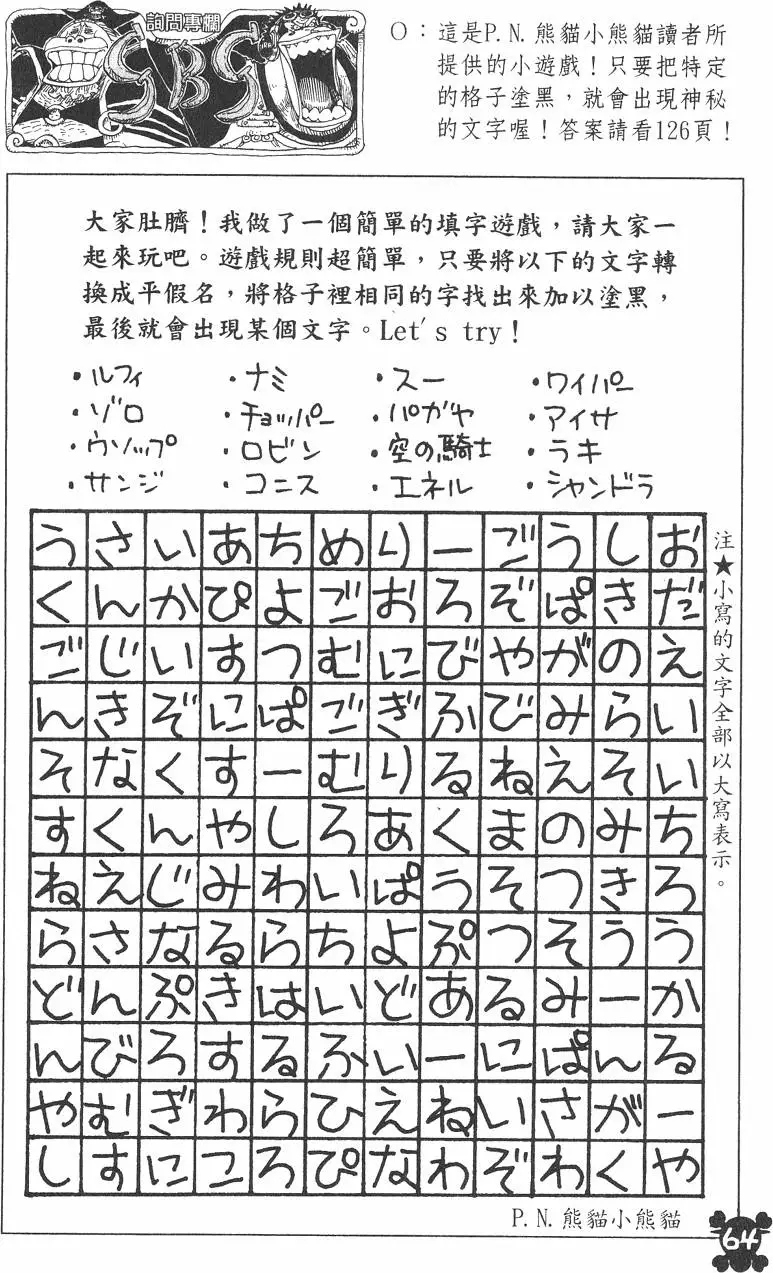 詢問專欄
SBS
O：這是P.N.熊貓小熊貓讀者所
提供的小遊戲！只要把特定
的格子塗黑，就會出現神秘
的文字喔！答案請看126頁！
大家肚臍！我做了一個簡單的填字遊戲，請大家一
起來玩吧。遊戲規則超簡單，只要將以下的文字轉
換成平假名，將格子裡相同的字找出來加以塗黑，
最後就會出現某個文字。Let's try！
・ルフィ ・ナミ ・スー ・ワイパー
・ゾロ ・チョッパー ・パガヤ ・アイサ
・ウソップ ・ロビン ・空の騎士 ・ラキ
・サンジ ・コニス ・エネル ・シャンドラ
うさいあちめりーごうしお
くんかぴよごおろぞぱきだ
ごじいすつむにびやがのえ
んきぞにぱごぎふびみらい
そなくすーむりるねえそい
すくんやしろあくまのみち
ねえじみわいぱうそつきろ
らさなるらちよぷつそうう
どんぷきはいどあるみーか
んびろするふいーにぱんる
やむぎわらひえねいさがー
しすにころぴなわぞわくや
注★小寫的文字全部以大寫表示。
P.N.熊貓小熊貓
64